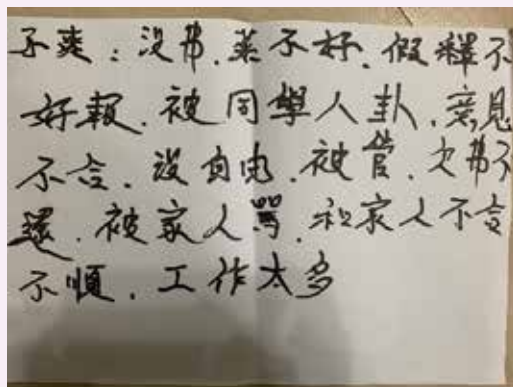 不爽：没帛.菜不好.假釋不
好報.被同學人卦.意見
不合.没自由.被管.欠帛不
還.被家人罵.和家人不合
不順.工作太多